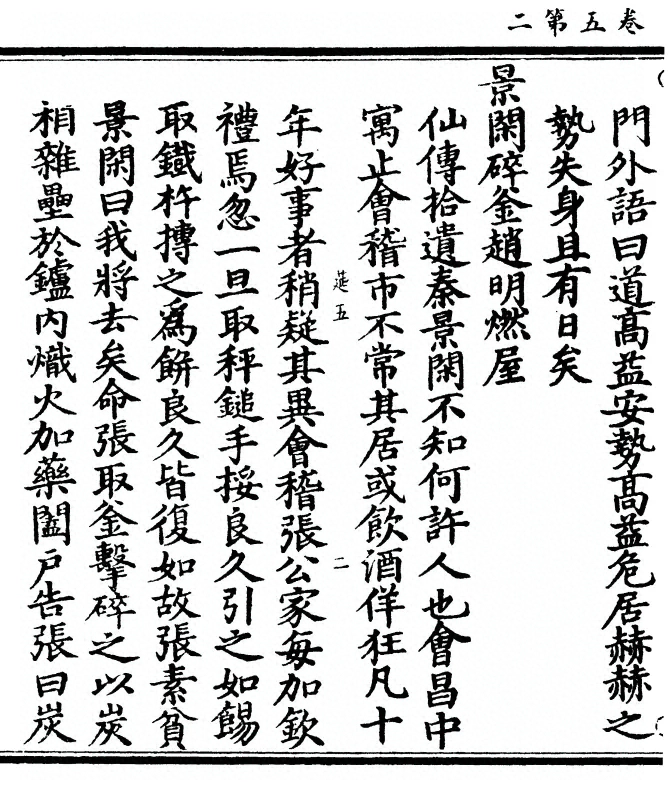 卷五第二
門外語曰道高益安勢高益危居赫赫之
勢失身且有日矣
景閑碎釡趙明燃屋
仙傳拾遺秦景閑不知何許人也會昌中
寓止會稽市不常其居或飲酒佯狂凡十
莚五
二
年好事者稍疑其異會稽張公家每加欽
禮焉忽一旦取秤鎚手挼良久引之如餳
取鐵杵摶之爲餅良久皆復如故張素貧
景閑曰我將去矣命張取釡擊碎之以炭
相雜壘於鑪内熾火加藥闔戸告張曰炭